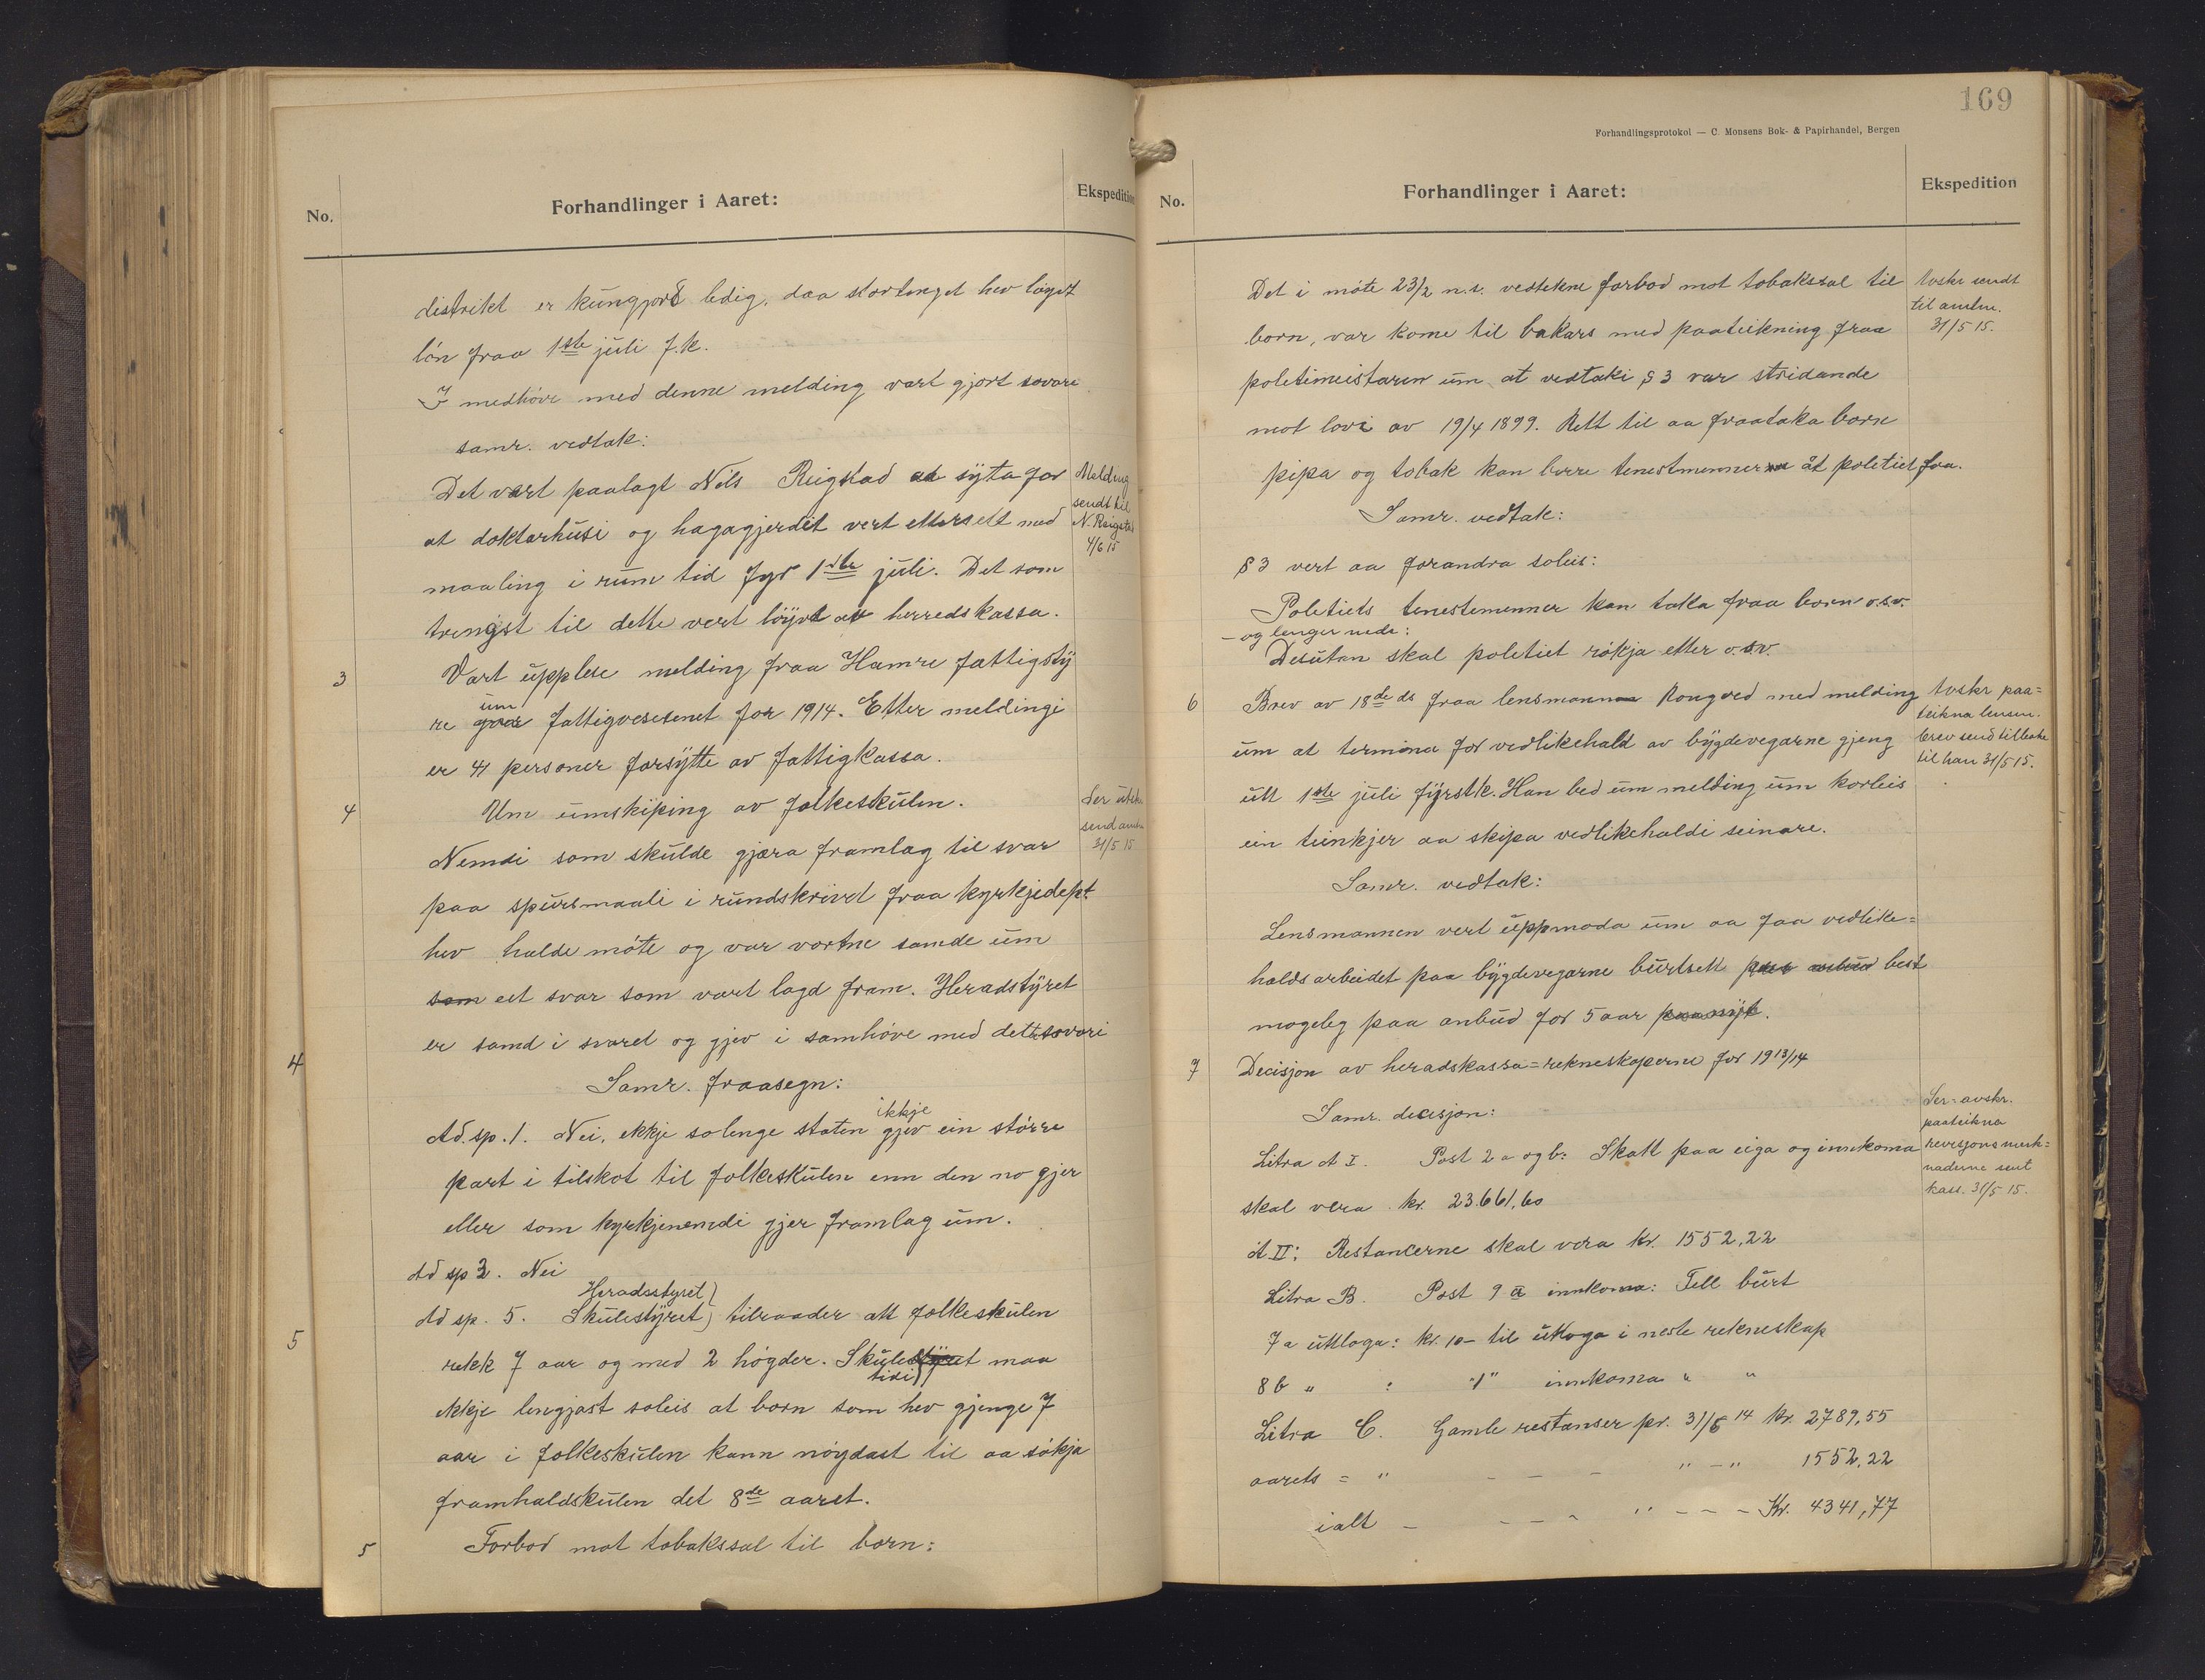 No.
Forhandlinger i Aaret:
Ekspedition
distrikt er kungjord ledig, daa stortinget hev löyvt
lön fraa 1ste juli f.k.
I medhöve med denne melding vart gjort sovore
samr. vedtak:
Det vart paalagt Nils Reigstad at syta for
at doktarhusi og hagagjerdet vert ettersett med
maaling i rum tid fyr 1ste juli. Det som
trengst til dette vert löyvt av herredskassa.
Melding
sendt til
N. Reigstad
4/6 15
3
Vart upplese melding fraa Hamre fattigsty
re um fattigvesenet for 1914. Etter meldingi
er 41 personer forsytte av fattigkassa.
4
Um umskiping av folkeskulen.
Ser utskr.
send amtm.
31/5 15
Nemdi som skulde gjæra framlag til svar
paa spursmaali i rundskrivet fraa kyrkjedept.
hev halde möte og var vortne samde um
som eit svar som vart lagd fram. Heradstyret
er samd i svaret og gjev i samhöve med dette sovori
4
Samr. fraasegn:
Ad. sp. 1. Nei, ekkje solenge staten ikkje gjev ein större
part i tilskot til folkeskulen enn den no gjer
eller som kyrkjenemdi gjer framlag um.
Ad sp 3. Nei
Heradsstyret)
Ad sp. 5. Skulestyret) tilraader att folkeskulen
5
rekk 7 aar og med 2 högder. Skulestyret maa
tidi
ekkje lengjast soleis at born som hev gjenge 7
aar i folkeskulen kann nöydast til aa sökja
framhaldskulen det 8de aaret.
5
Forbod mot tobakssal til born:
169
Forhandlingsprotokol — C. Monsens Bok- & Papirhandel, Bergen
No.
Forhandlinger i Aaret:
Ekspedition
Det i möte 23/2 n.s. vedtekne forbod mot tobakssal til
born, var kome til bakars med paateikning fraa
politimeistaren um at vedtaki § 3 var stridande
mot lovi av 19/4 1899. Rett til aa fraataka born
pipa og tobak kan berre tenestmenner åt politiet faa.
utskr sendt
til amtm.
31/5 15.
Samr. vedtak:
§ 3 vert aa forandra soleis:
Politiets tenestemenner kan taka fraa born o.s.v.
– og lenger nede:
Desutan skal politiet rökja etter o.s.v.
6
Brev av 18de ds fraa lensmann Rongved med melding
um at termina for vedlikehald av bygdevegarne gjeng
utt 1ste juli fyrstk. Han bed um melding um korleis
ein tænkjer aa skipa vedlikehaldi seinare.
utskr paa=
teikna lensm.
brev send tilbake
til han 31/5 15.
Samr. vedtak:
Lensmannen vert uppmoda um aa faa vedlike=
haldsarbeidet paa bygdevegarne burtsett paa anbud best
mogeleg paa anbud for 5 aar paa nytt.
7
Decisjon av heradskassa=rekneskaperne for 1913/14
Samr. decisjon:
Ser: avskr.
paateikna
revisjonsmerk=
naderne sent
kass. 31/5 15.
Litra A I. Post 2 a og b: Skatt paa eiga og innkoma
skal vera kr. 23.661,60
A II: Restancerne skal vera kr. 1552,22
Litra B. Post 9 a innkoma: Fell burt
7 a utloga: kr. 10– til utloga i neste rekneskap
8 b " : "1" innkoma " "
Litra C. Gamle restanser pr. 31/6 14 kr. 2789,55
aarets = " – – – " – " 1552,22
ialt – – – – " – – – Kr. 4341,77